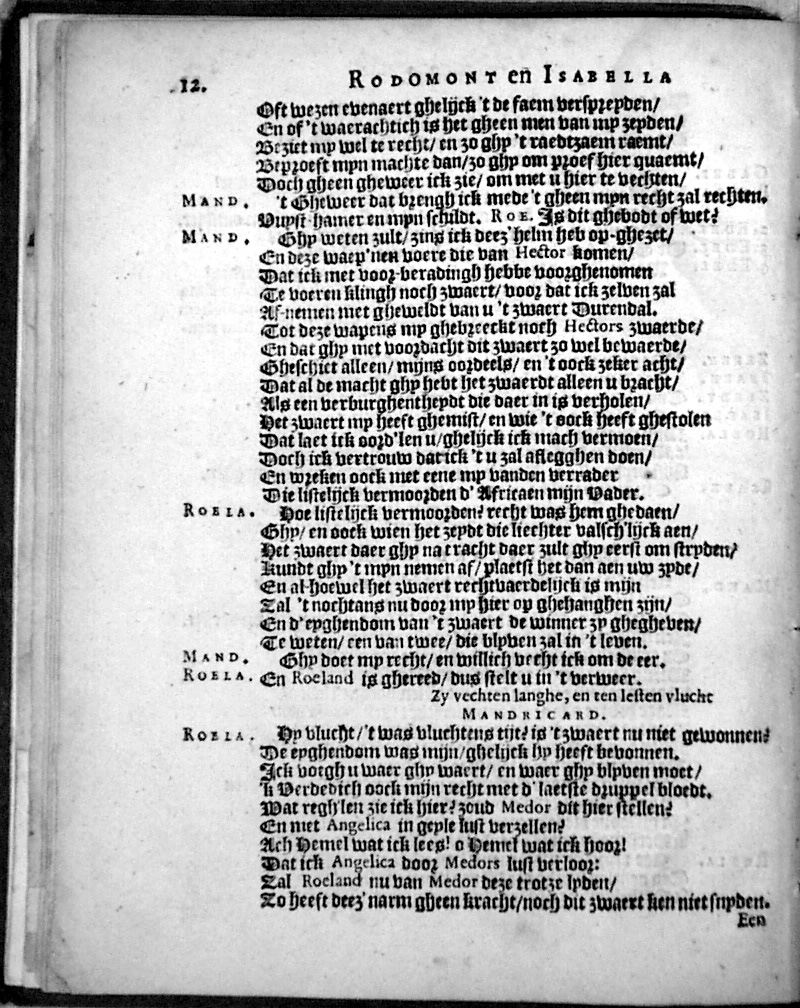 12. RODOMONT en ISABELLA
Oft wezen evenaert ghelijck 't de faem verspreyden/
En of 't waerachtich is het gheen men van my zeyden/
Beziet my wel te recht/ en zo ghy 't raedtzaem raemt/
Beproeft mijn machte dan/ zo ghy om proef hier quaemt/
Doch gheen gheweer ick zie/ om met u hier te vechten/
MAND. 't Gheweer dat brengh ick mede 't gheen mijn recht zal rechten.
Vuyst-hamer en mijn schildt. ROE. Is dit ghebodt of wet?
MAND. Ghy weten zult/ zins ick deez' helm heb op-ghezet/
En deze waep'nen voere die van Hector komen/
Dat ick met voor-beradingh hebbe voorghenomen
Te voeren klingh noch zwaert/ voor dat ick zelven zal
Af-nemen met gheweldt van u 't zwaert Durendal.
Tot deze wapens my ghebreeckt noch Hectors zwaerde/
En dat ghy met voordacht dit zwaert zo wel bewaerde/
Gheschiet alleen/ mijns oordeels/ en 't oock zeker acht/
Dat al de macht ghy hebt het zwaerdt alleen u bracht/
Als een verburghentheydt die daer in is verholen/
Het zwaert my heeft ghemist/ en wie 't oock heeft ghestolen
Dat laet ick oord'len u/ ghelijck ick mach vermoen/
Doch ick vertrouw dat ick 't u zal aflegghen doen/
En wreken oock met eene my vanden verrader
Die listelijck vermoorden d' Africaen mijn Vader.
ROELA. Hoe listelijck vermoorden? recht was hem ghedaen/
Ghy/ en oock wien het zeydt die liechter valsch'lijck aen/
Het zwaert daer ghy na tracht daer zult ghy eerst om stryden/
Kundt ghy 't mijn nemen af/ plaetst het dan aen uw zyde/
En al-hoewel het zwaert rechtvaerdelijck is mijn
Zal 't nochtans nu door my hier op ghehanghen zijn/
En d'eyghendom van 't zwaert de winner zy ghegheven/
Te weten/ een van twee/ die blyven zal in 't leven.
MAND. Ghy doet my recht/ en willich vecht ick om de eer.
ROELA. En Roeland is ghereed/ dus stelt u in 't verweer.
Zy vechten langhe, en ten lesten vlucht
MANDRICARD.
ROELA. Hy vlucht/ 't was vluchtens tijt? is 't zwaert nu niet gewonnen?
De eyghendom was mijn/ ghelijck hy heeft bevonnen.
Ick volgh u waer ghy waert/ en waer ghy blyven moet/
'k Verdedich oock mijn recht met d' laetste druppel bloedt.
Wat regh'len zie ick hier? zoud Medor dit hier stellen?
En met Angelica in geyle lust verzellen?
Ach Hemel wat ick lees! o Hemel wat ick hoor!
Dat ick Angelica door Medors lust verloor:
Zal Roeland nu van Medor deze trotze lyden/
Zo heeft deez' narm gheen kracht/ noch dit zwaert ken niet snyden.
Een